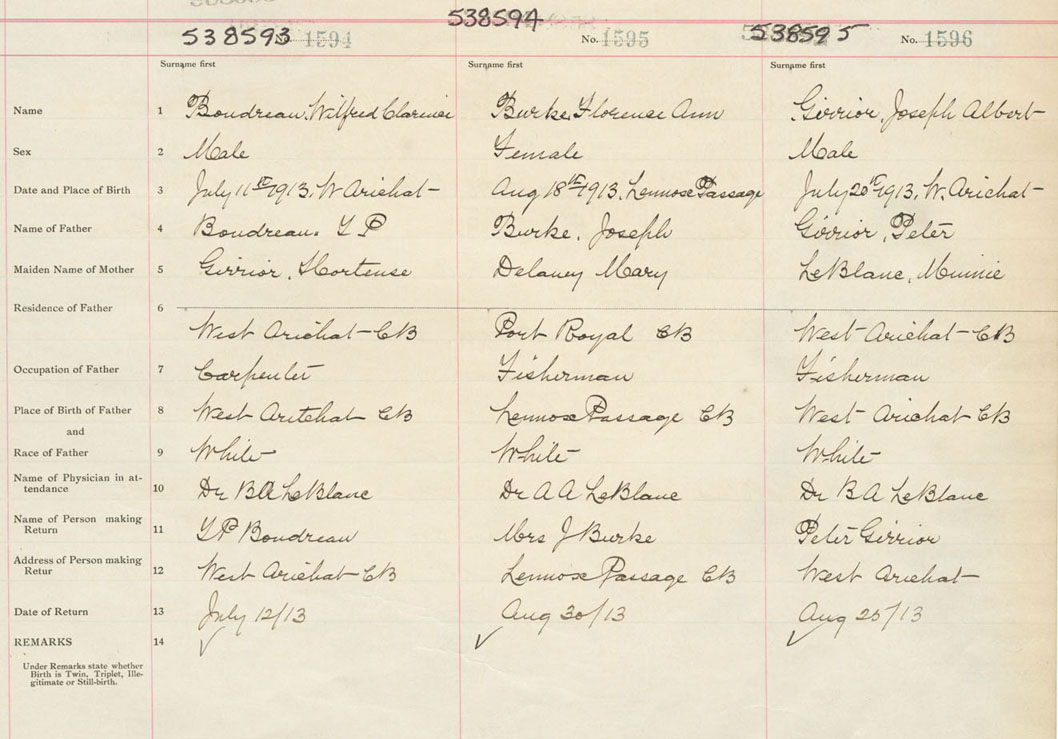 538593 No. 1594 538594 No. 1595 538595 No. 1596
Surname first Surname first Surname first
Name 1 Boudreau, Wilfred Clarence Burke, Florence Ann Girrior, Joseph Albert
Sex 2 Male Female Male
Date and Place of Birth 3 July 11th 1913, W Arichat Aug 18th 1913. Lennox Passage July 20th 1913, W. Arichat
Name of Father 4 Boudreau. Y P Burke, Joseph Girrior, Peter
Maiden Name of Mother 5 Girrior, Hortense Delaney Mary LeBlanc, Minnie
Residence of Father 6
West Arichat CB Port Royal CB West Arichat CB
Occupation of Father 7 Carpenter Fisherman Fisherman
Place of Birth of Father 8 West Aritchat CB Lennox Passage CB West Arichat CB
and
Race of Father 9 White White White
Name of Physician in at-
tendance 10 Dr B A LeBlanc Dr A A LeBlanc Dr B A LeBlanc
Name of Person making
Return 11 Y P Boudreau Mrs J Burke Peter Girrior
Address of Person making
Retur 12 West Arichat CB Lennox Passage CB West Arichat
Date of Return 13 July 12/13 Aug 30/13 Aug 25/13
REMARKS 14 ✓ ✓ ✓
Under Remarks state whether
Birth is Twin, Triplet, Ille-
gitimate or Still-birth.